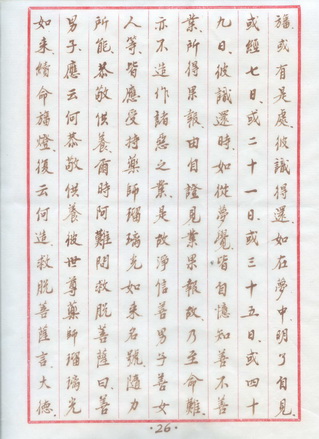 旛、或有是處、彼識得還、如在夢中、明了自見、
或經七日、或二十一日、或三十五日、或四十
九日、彼識還時、如從夢覺、皆自憶知善不善
業、所得果報、由自證見業果報故、乃至命難、
亦不造作諸惡之業、是故淨信善男子善女
人等、皆應受持藥師瑠璃光如來名號、隨力
所能、恭敬供養、爾時阿難問救脫菩薩曰、善
男子、應云何恭敬供養彼世尊藥師瑠璃光
如來、續命旛燈、復云何造、救脫菩薩言、大德、
·26·